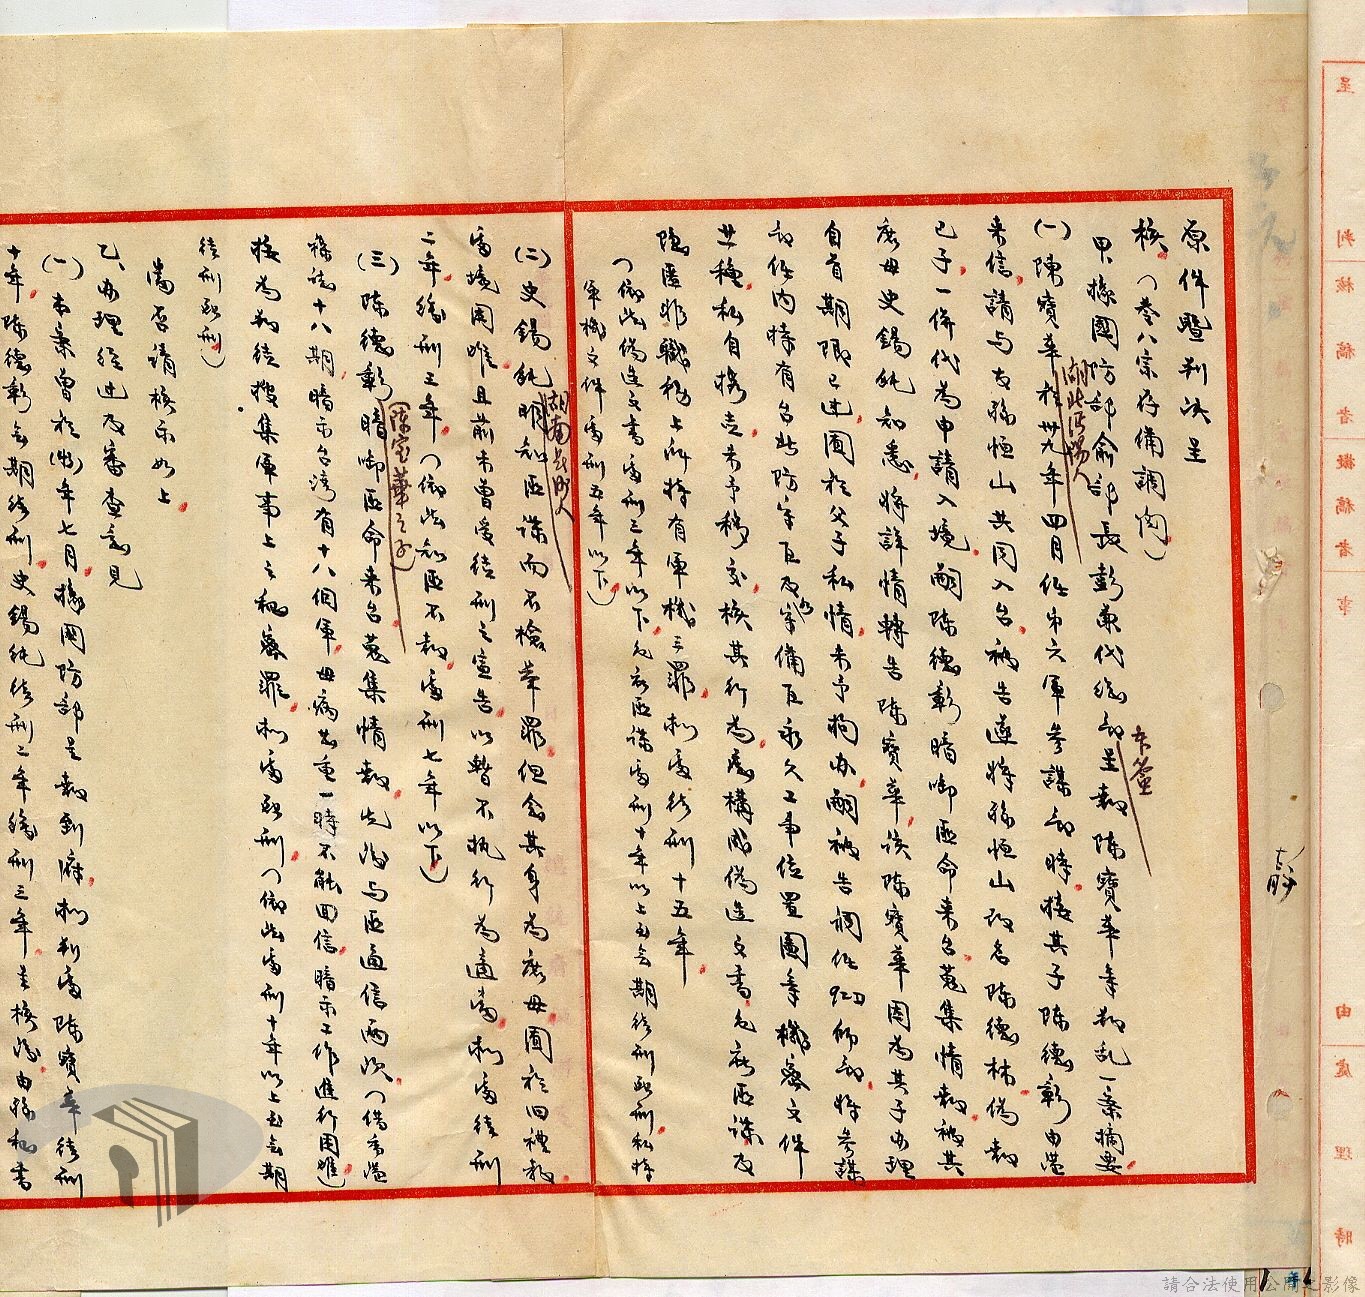 原件暨判決呈
核。(卷八宗存備調閱)
甲、據國防部俞部長彭兼代總部呈報陳寶華等叛亂一案摘要
(一)陳寶華於卅九年四月任中六軍參謀部時,接其子陳德彰由港
湖北沔陽人
來信,請与友孫恒山共同入台,被告遂將孫恒山改名陳德林,偽報
已子一併代為申請入境,嗣陳德彰暗啣匪命來台蒐集情報,被其
庶母史錫純知悉,將詳情轉告陳寶華,該陳寶華因為其子办理
自首期限已過,囿於父子私情,未予拘办,嗣被告調任927師部,將參謀
部任內時有台北防守區及岸備區永久工事位置圖等機密文件
廿種,私自攜走未予移交,核其行為應構成偽造文書,包庇匪諜及
隱匿非職務上所持有軍機三罪,拟處徒刑十五年。
(依照偽造文書處刑三年以下,包庇匪諜處刑十年以上至無期徒刑死刑私持
軍機文件處刑五年以下)
(二)史錫純明知匪諜而不檢舉罪,但念其身為庶母囿於旧禮教
處境困难,且前未曾受徒刑之宣告,以暫不执行為適當,拟處徒刑
二年,緩刑三年,(依照知匪不報處刑七年以下)
(三)陳德彰暗啣匪命來台蒐集情報,先後与匪通信兩次,(借香港
(陳寶華之子)
雜誌十八期,暗示台湾有十八個軍,母病甚重一時不能回信,暗示工作進行困难)
核為叛徒搜集軍事上之秘密罪,拟處死刑(依照處刑十年以上至無期
徒刑死刑)
當否請核示如上。
乙、办理經过及審查意見
(一)本案曾於(43)年七月,據國防部呈報到府,拟判處陳寶華徒刑
十年,陳德彰無期徒刑,史錫純徒刑二年緩刑三年,呈核後,由孫秘書
呈 判 核 稿 者 擬 稿 者 事 由 處 理 時
請合法使用公開之影像